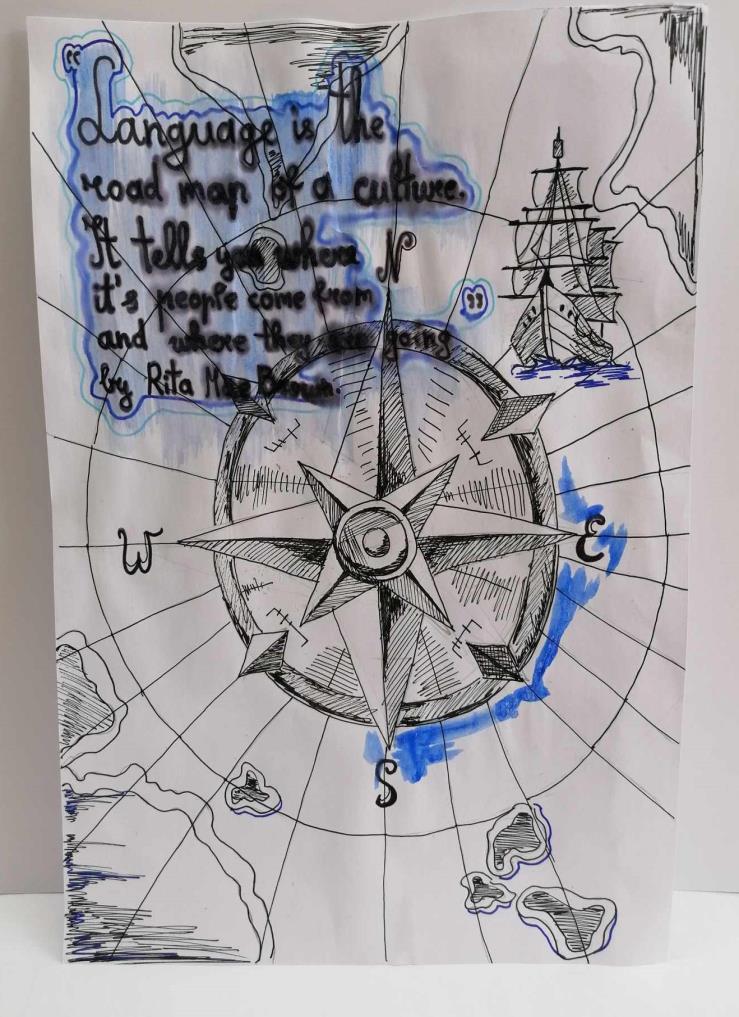 "Language is the
road map of a culture.
It tells you where
it's people come from
and where they are going"
by Rita Mae Brown.
N
W
E
S